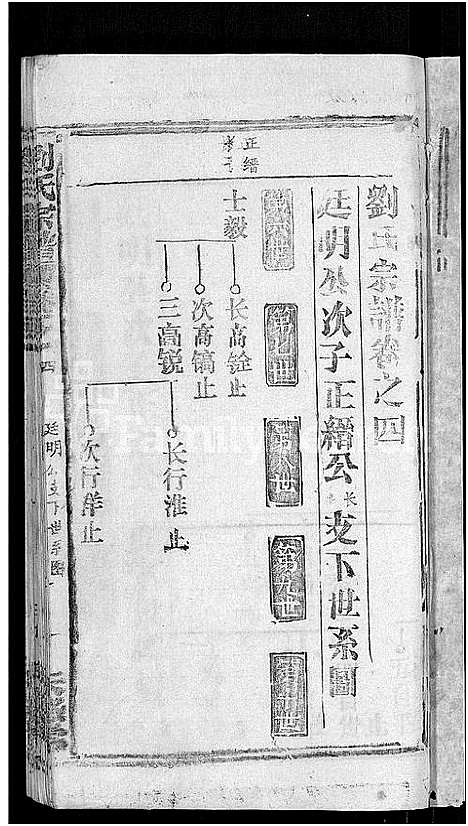 劉氏宗譜卷之四
廷明公次子正縉公長支下世系圖
第六世
第七世
第八世
第九世
第十世
正縉
長子
士毅
长高銓止
次高鎬止
三高銳
长行淮止
次行洋止
劉氏宗譜
四
廷明公支下世系圖